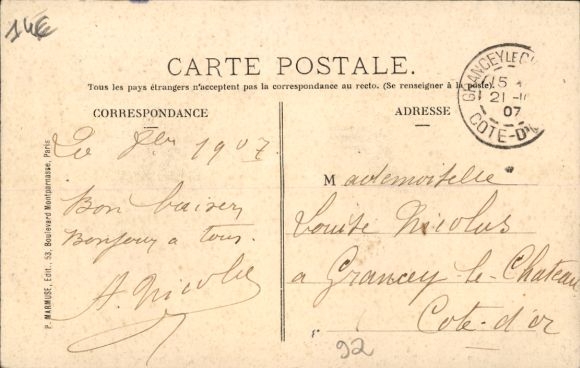 14€
CARTE POSTALE.
Tous les pays étrangers n'acceptent pas la correspondance au recto. (Se renseigner à la poste).
CORRESPONDANCE
ADRESSE
GRANCEY LE CH
15
21 -
07
COTE-D'
20 fév 1907
Bon baiser
Bonjour a tous.
A. Nicolas
Mademoiselle
Louise Nicolas
a Grancey-le-Chateau
Cote-d'or
92
P. MARMUSE, Edit., 53, Boulevard Montparnasse, Paris